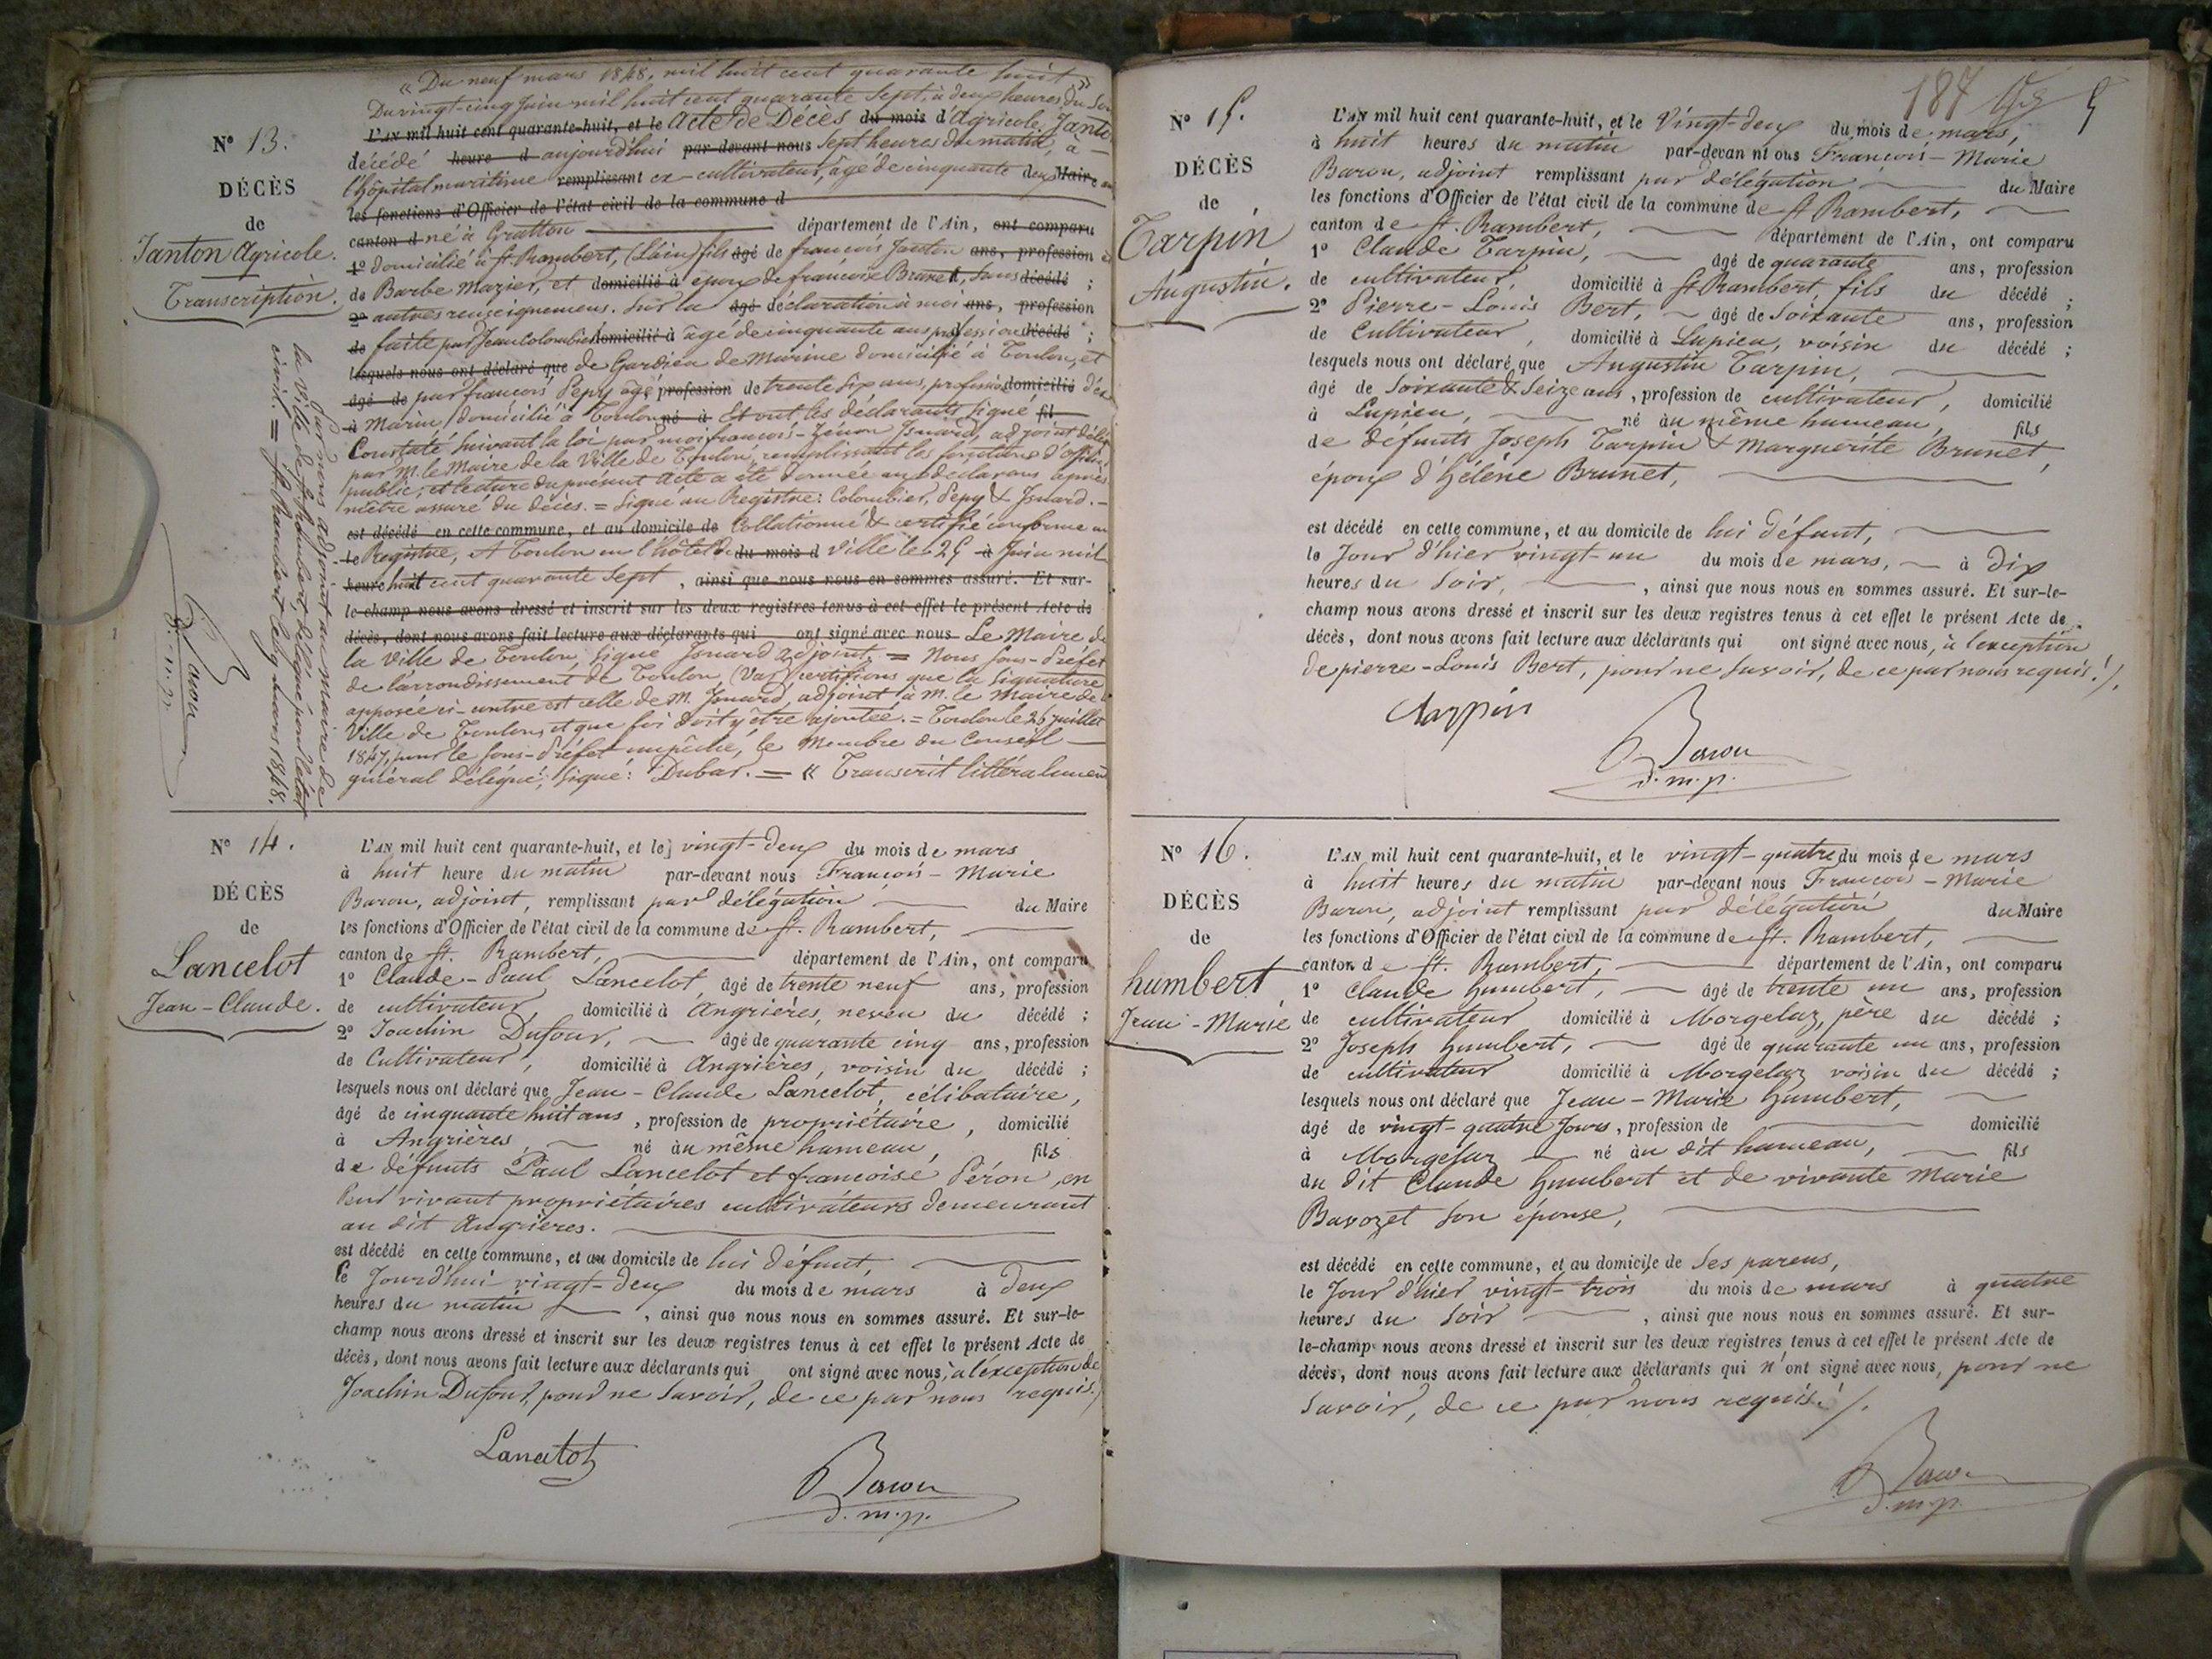 « Du neuf mars 1848, mil huit cent quarante huit »
Du vingt-cinq Juin mil huit cent quarante sept, à deux heures du Soir
L'AN mil huit cent quarante-huit, et le Acte de Décès du mois d'Agricole Janton
N° 13.
décédé heure d aujourd'hui par devant nous Sept heures du matin, à
l'hôpital maritime remplissant ex-cultivateur, âgé de cinquante deux Maire ans
DÉCÈS
les fonctions d'Officier de l'état civil de la commune d
de
canton d né à Gratton département de l'Ain, ont comparu
Janton Agricole.
1° domicilié à St. Rambert, (L'ain) fils âgé de françois Janton ans, profession et
Transcription.
de Barbe Mazier, et domicilié à époux de françoise Brunet, Sans décédé ;
2° autres renseignemens. Sur la âgé déclaration à moi ans, profession
de faite par Jean Colombier domicilié à âgé de cinquante ans profession décédé ;
lesquels nous ont déclaré que de Gardien de Marine domicilié à Toulon, et
âgé de par françois Pepy âgé profession de trente six ans, profession domicilié
à Marin, domicilié à Toulon né à Et ont les déclarants Signé, fil
Constaté Suivant la loi par moi françois-Zénon Isnard, adjoint délégué
par M. le Maire de la Ville de Toulon, remplissant les fonctions d'officier
public, et lecture du présent Acte a été donnée aux déclarans après
m'être assuré du décès. = Signé au Registre: Colombier, Pepy & Isnard. -
est décédé en cette commune, et au domicile de Collationné & certifié conforme au
le Registre, A Toulon en l'hôtel de du mois d Ville le 25 à Juin mil
heure huit cent quarante Sept, ainsi que nous nous en sommes assuré. Et sur-
le-champ nous avons dressé et inscrit sur les deux registres tenus à cet effet le présent Acte de
décès, dont nous avons fait lecture aux déclarants qui ont signé avec nous Le Maire de
la Ville de Toulon, Signé Isnard adjoint. = Nous Sous-Préfet
de l'arrondissement de Toulon, (Var) certifions que la Signature
apposée ci-contre est celle de M. Isnard, adjoint à M. le Maire de la
Ville de Toulon, et que foi doit y être ajoutée. = Toulon le 26 juillet
1847, pour le Sous-Préfet empêché, le Membre du Conseil
général délégué; Signé: Dubar. = « Transcrit littéralement
par nous adjoint au maire de
la ville de St. Rambert, délégué pour l'état
civil. = St. Rambert le 9 mars 1848.
Baron
d. m. p.
N° 14.
DÉCÈS
de
Lancelot
Jean-Claude.
L'AN mil huit cent quarante-huit, et le vingt-deux du mois de mars
à huit heure du matin par-devant nous François-Marie
Baron, adjoint, remplissant par délégation du Maire
les fonctions d'Officier de l'état civil de la commune de St. Rambert,
canton de St. Rambert, département de l'Ain, ont comparu
1° Claude-Paul Lancelot, âgé de trente neuf ans, profession
de cultivateur, domicilié à Angrières, neveu du décédé ;
2° Joachin Dufour, âgé de quarante cinq ans, profession
de Cultivateur, domicilié à Angrières, voisin du décédé ;
lesquels nous ont déclaré que Jean-Claude Lancelot, célibataire,
âgé de cinquante huit ans, profession de propriétaire, domicilié
à Angrières, né au même hameau, fils
de défunts Paul Lancelot et françoise Péron, en
leur vivant propriétaires cultivateurs demeurant
au dit Angrières.
est décédé en cette commune, et au domicile de lui défunt,
le Jourd'hui vingt-deux du mois de mars à deux
heures du matin, ainsi que nous nous en sommes assuré. Et sur-le-
champ nous avons dressé et inscrit sur les deux registres tenus à cet effet le présent Acte de
décès, dont nous avons fait lecture aux déclarants qui ont signé avec nous, à l'exception de
Joachin Dufour, pour ne Savoir, de ce par nous requis./.
Lancelot
Baron
d. m. p.
187
5
N° 15.
DÉCÈS
de
Tarpin
Augustin.
L'AN mil huit cent quarante-huit, et le Vingt-deux du mois de mars,
à huit heures du matin par-devan nt ous François-Marie
Baron, adjoint remplissant par délégation du Maire
les fonctions d'Officier de l'état civil de la commune de St Rambert,
canton de St. Rambert, département de l'Ain, ont comparu
1° Claude Tarpin, âgé de quarante ans, profession
de cultivateur, domicilié à St Rambert, fils du décédé ;
2° Pierre-Louis Bert, âgé de Soixante ans, profession
de Cultivateur, domicilié à Lupieu, voisin du décédé ;
lesquels nous ont déclaré que Augustin Tarpin,
âgé de Soixante & Seize ans, profession de cultivateur, domicilié
à Lupieu, né au même hameau, fils
de défunts Joseph Tarpin & Marguerite Brunet,
époux d'Hélène Brunet,
est décédé en cette commune, et au domicile de lui défunt,
le Jour d'hier vingt-un du mois de mars, à dix
heures du Soir, ainsi que nous nous en sommes assuré. Et sur-le-
champ nous avons dressé et inscrit sur les deux registres tenus à cet effet le présent Acte de
décès, dont nous avons fait lecture aux déclarants qui ont signé avec nous, à l'exception
de pierre-Louis Bert, pour ne Savoir, de ce par nous requis./.
Tarpin
Baron
d. m. p.
N° 16.
DÉCÈS
de
humbert
Jean-Marie
L'AN mil huit cent quarante-huit, et le vingt-quatre du mois de mars
à huit heures du matin par-devant nous François-Marie
Baron, adjoint remplissant par délégation du Maire
les fonctions d'Officier de l'état civil de la commune de St. Rambert,
canton de St. Rambert, département de l'Ain, ont comparu
1° Claude humbert, âgé de trente un ans, profession
de cultivateur domicilié à Morgelaz, père du décédé ;
2° Joseph humbert, âgé de quarante un ans, profession
de cultivateur domicilié à Morgelaz voisin du décédé ;
lesquels nous ont déclaré que Jean-Marie humbert,
âgé de vingt-quatre Jours, profession de domicilié
à Morgelaz né au dit hameau, fils
du dit Claude humbert et de vivante Marie
Bavozet Son épouse,
est décédé en cette commune, et au domicile de Ses parens,
le Jour d'hier vingt-trois du mois de mars à quatre
heures du Soir, ainsi que nous nous en sommes assuré. Et sur-
le-champ nous avons dressé et inscrit sur les deux registres tenus à cet effet le présent Acte de
décès, dont nous avons fait lecture aux déclarants qui n'ont signé avec nous, pour ne
Savoir, de ce par nous requis./.
Baron
d. m. p.